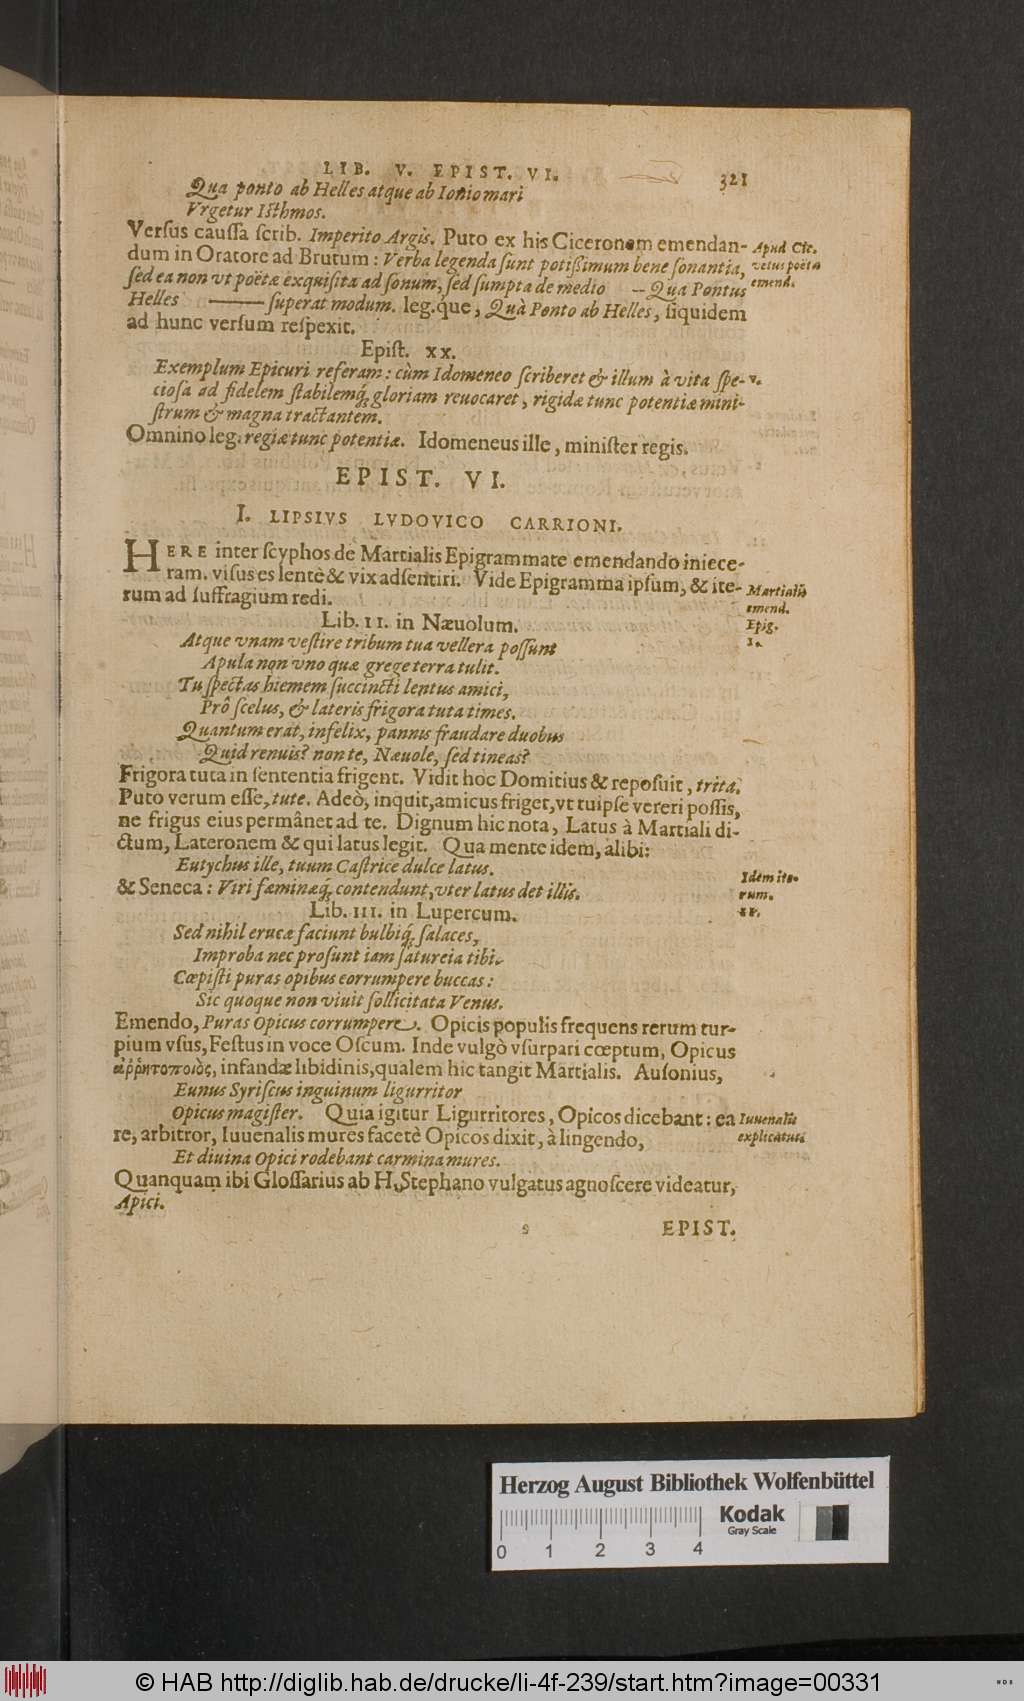 LIB. V. EPIST. VI. 321
Qua ponto ab Helles atque ab Ionio mari
Vrgetur Isthmos.
Versus caussa scrib. Imperito Argis. Puto ex his Ciceronem emendan-
dum in Oratore ad Brutum: Verba legenda sunt potißimum bene sonantia,
sed ea non vt poëtæ exquisita ad sonum, sed sumpta de medio — Qua Pontus
Helles ——— superat modum. leg. que, Quà Ponto ab Helles, siquidem
ad hunc versum respexit.
Apud Cic.
vetus poëta
emend.
Epist. XX.
Exemplum Epicuri referam: cùm Idomeneo scriberet & illum à vita spe-
ciosa ad fidelem stabilemq́; gloriam reuocaret, rigidæ tunc potentiæ mini-
strum & magna tractantem.
V.
Omnino leg. regiæ tunc potentiæ. Idomeneus ille, minister regis.
EPIST. VI.
I. LIPSIVS LVDOVICO CARRIONI.
HERE inter scyphos de Martialis Epigrammate emendando iniece-
ram. visus es lentè & vix adsentiri. Vide Epigramma ipsum, & ite-
rum ad suffragium redi.
Martialis
emend.
Epig.
I.
Lib. II. in Næuolum.
Atque vnam vestire tribum tua vellera possunt
Apula non vno quæ grege terra tulit.
Tu spectas hiemem succincti lentus amici,
Prô scelus, & lateris frigora tuta times.
Quantum erat, infelix, pannis fraudare duobus
Quid renuis? non te, Næuole, sed tineas?
Frigora tuta in sententia frigent. Vidit hoc Domitius & reposuit, trita.
Puto verum esse, tute. Adeò, inquit, amicus friget, vt tuipse vereri possis,
ne frigus eius permânet ad te. Dignum hic nota, Latus à Martiali di-
ctum, Lateronem & qui latus legit. Qua mente idem, alibi:
Eutychus ille, tuum Castrice dulce latus.
& Seneca: Viri fœminæq́; contendunt, vter latus det illis.
Idem ite-
rum.
II.
Lib. III. in Lupercum.
Sed nihil erucæ faciunt bulbiq́; salaces,
Improba nec prosunt iam satureia tibi.
Cœpisti puras opibus corrumpere buccas:
Sic quoque non viuit sollicitata Venus.
Emendo, Puras Opicus corrumpere. Opicis populis frequens rerum tur-
pium vsus, Festus in voce Oscum. Inde vulgò vsurpari cœptum, Opicus
ἀῤῥητοποιὸς, infandæ libidinis, qualem hic tangit Martialis. Ausonius,
Eunus Syriscus inguinum ligurritor
Opicus magister. Quia igitur Ligurritores, Opicos dicebant: ea
re, arbitror, Iuuenalis mures facetè Opicos dixit, à lingendo,
Iuuenalis
explicatus
Et diuina Opici rodebant carmina mures.
Quanquam ibi Glossarius ab H. Stephano vulgatus agnoscere videatur,
Apici.
EPIST.
Herzog August Bibliothek Wolfenbüttel
Kodak
Gray Scale
0 1 2 3 4
© HAB http://diglib.hab.de/drucke/li-4f-239/start.htm?image=00331